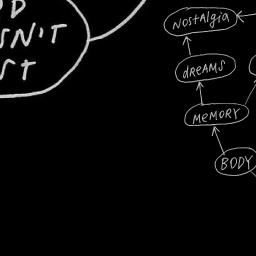 SN'T
ST
NOSTAlgiA
dREAMS
MEMORY
BODY